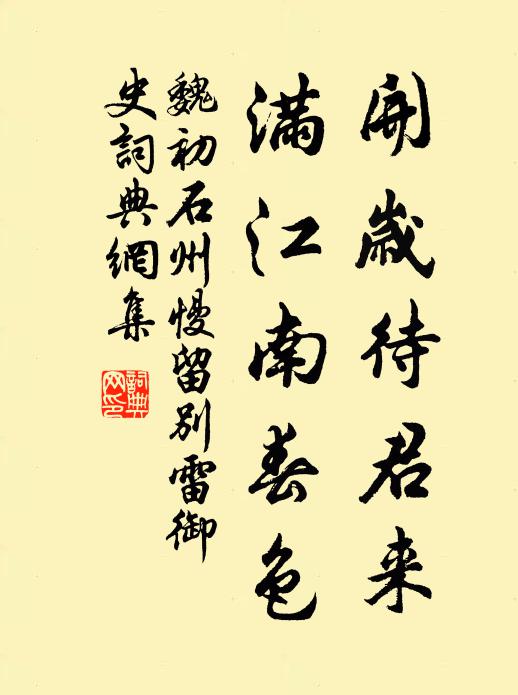 開歲待君来
滿江南春色
魏初石州慢留別雷御
史詞典網集
詞典
网印